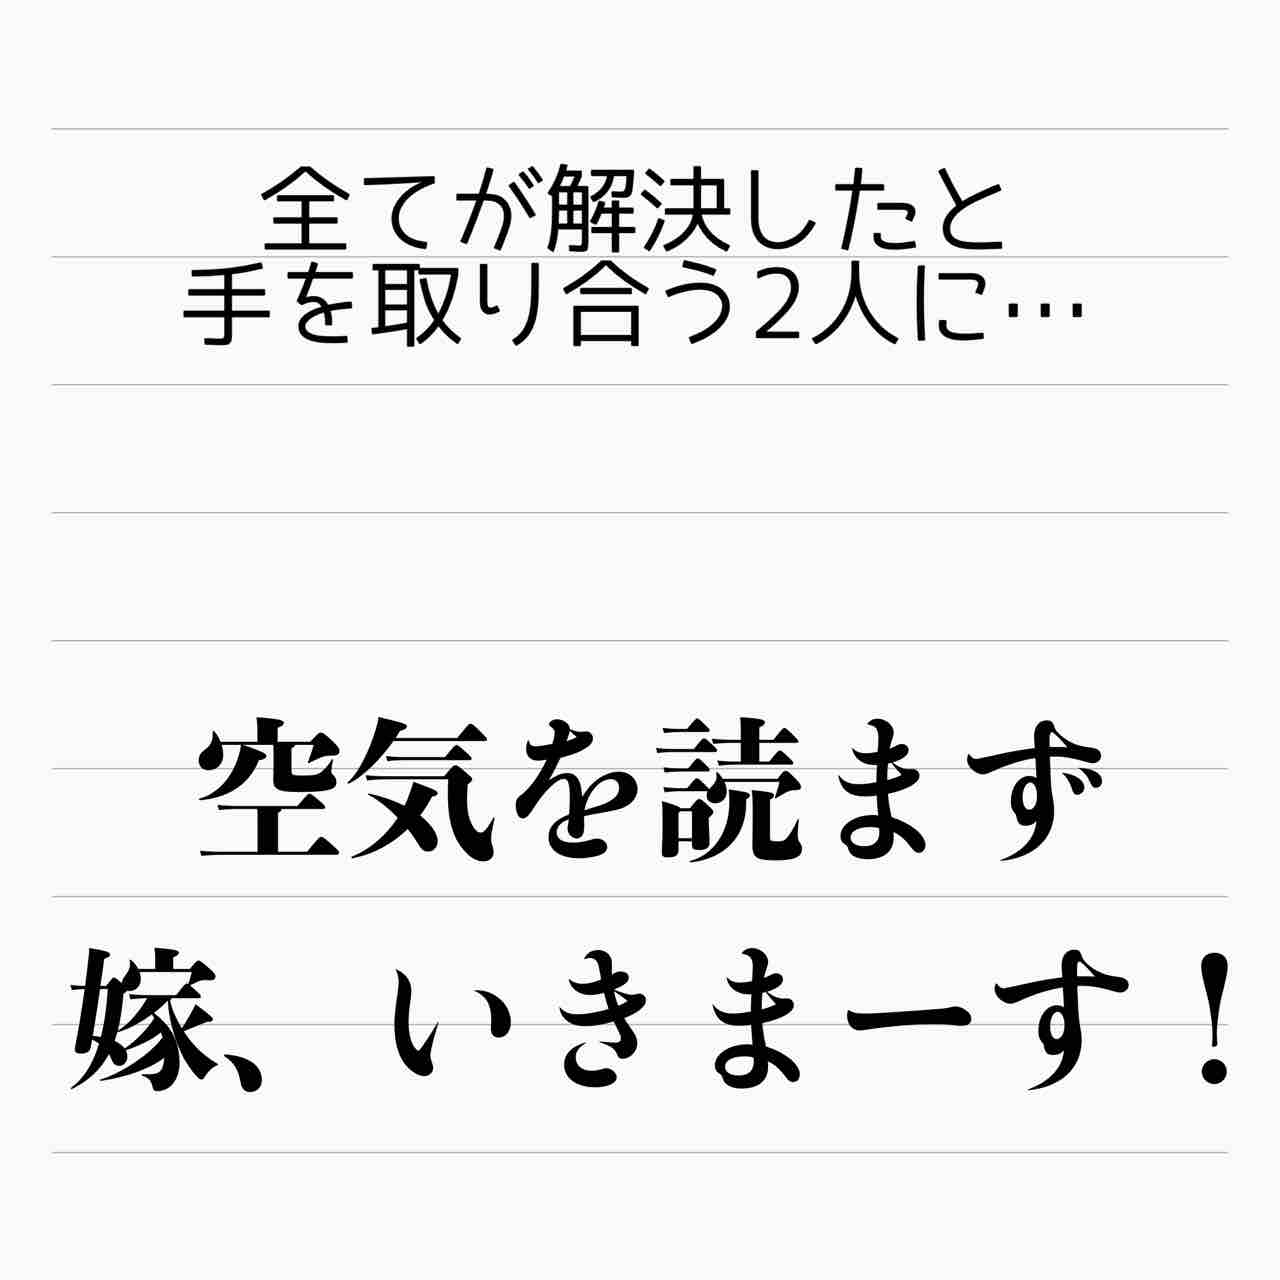 全てが解決したと
手を取り合う2人に…
空気を読まず
嫁、いきまーす！